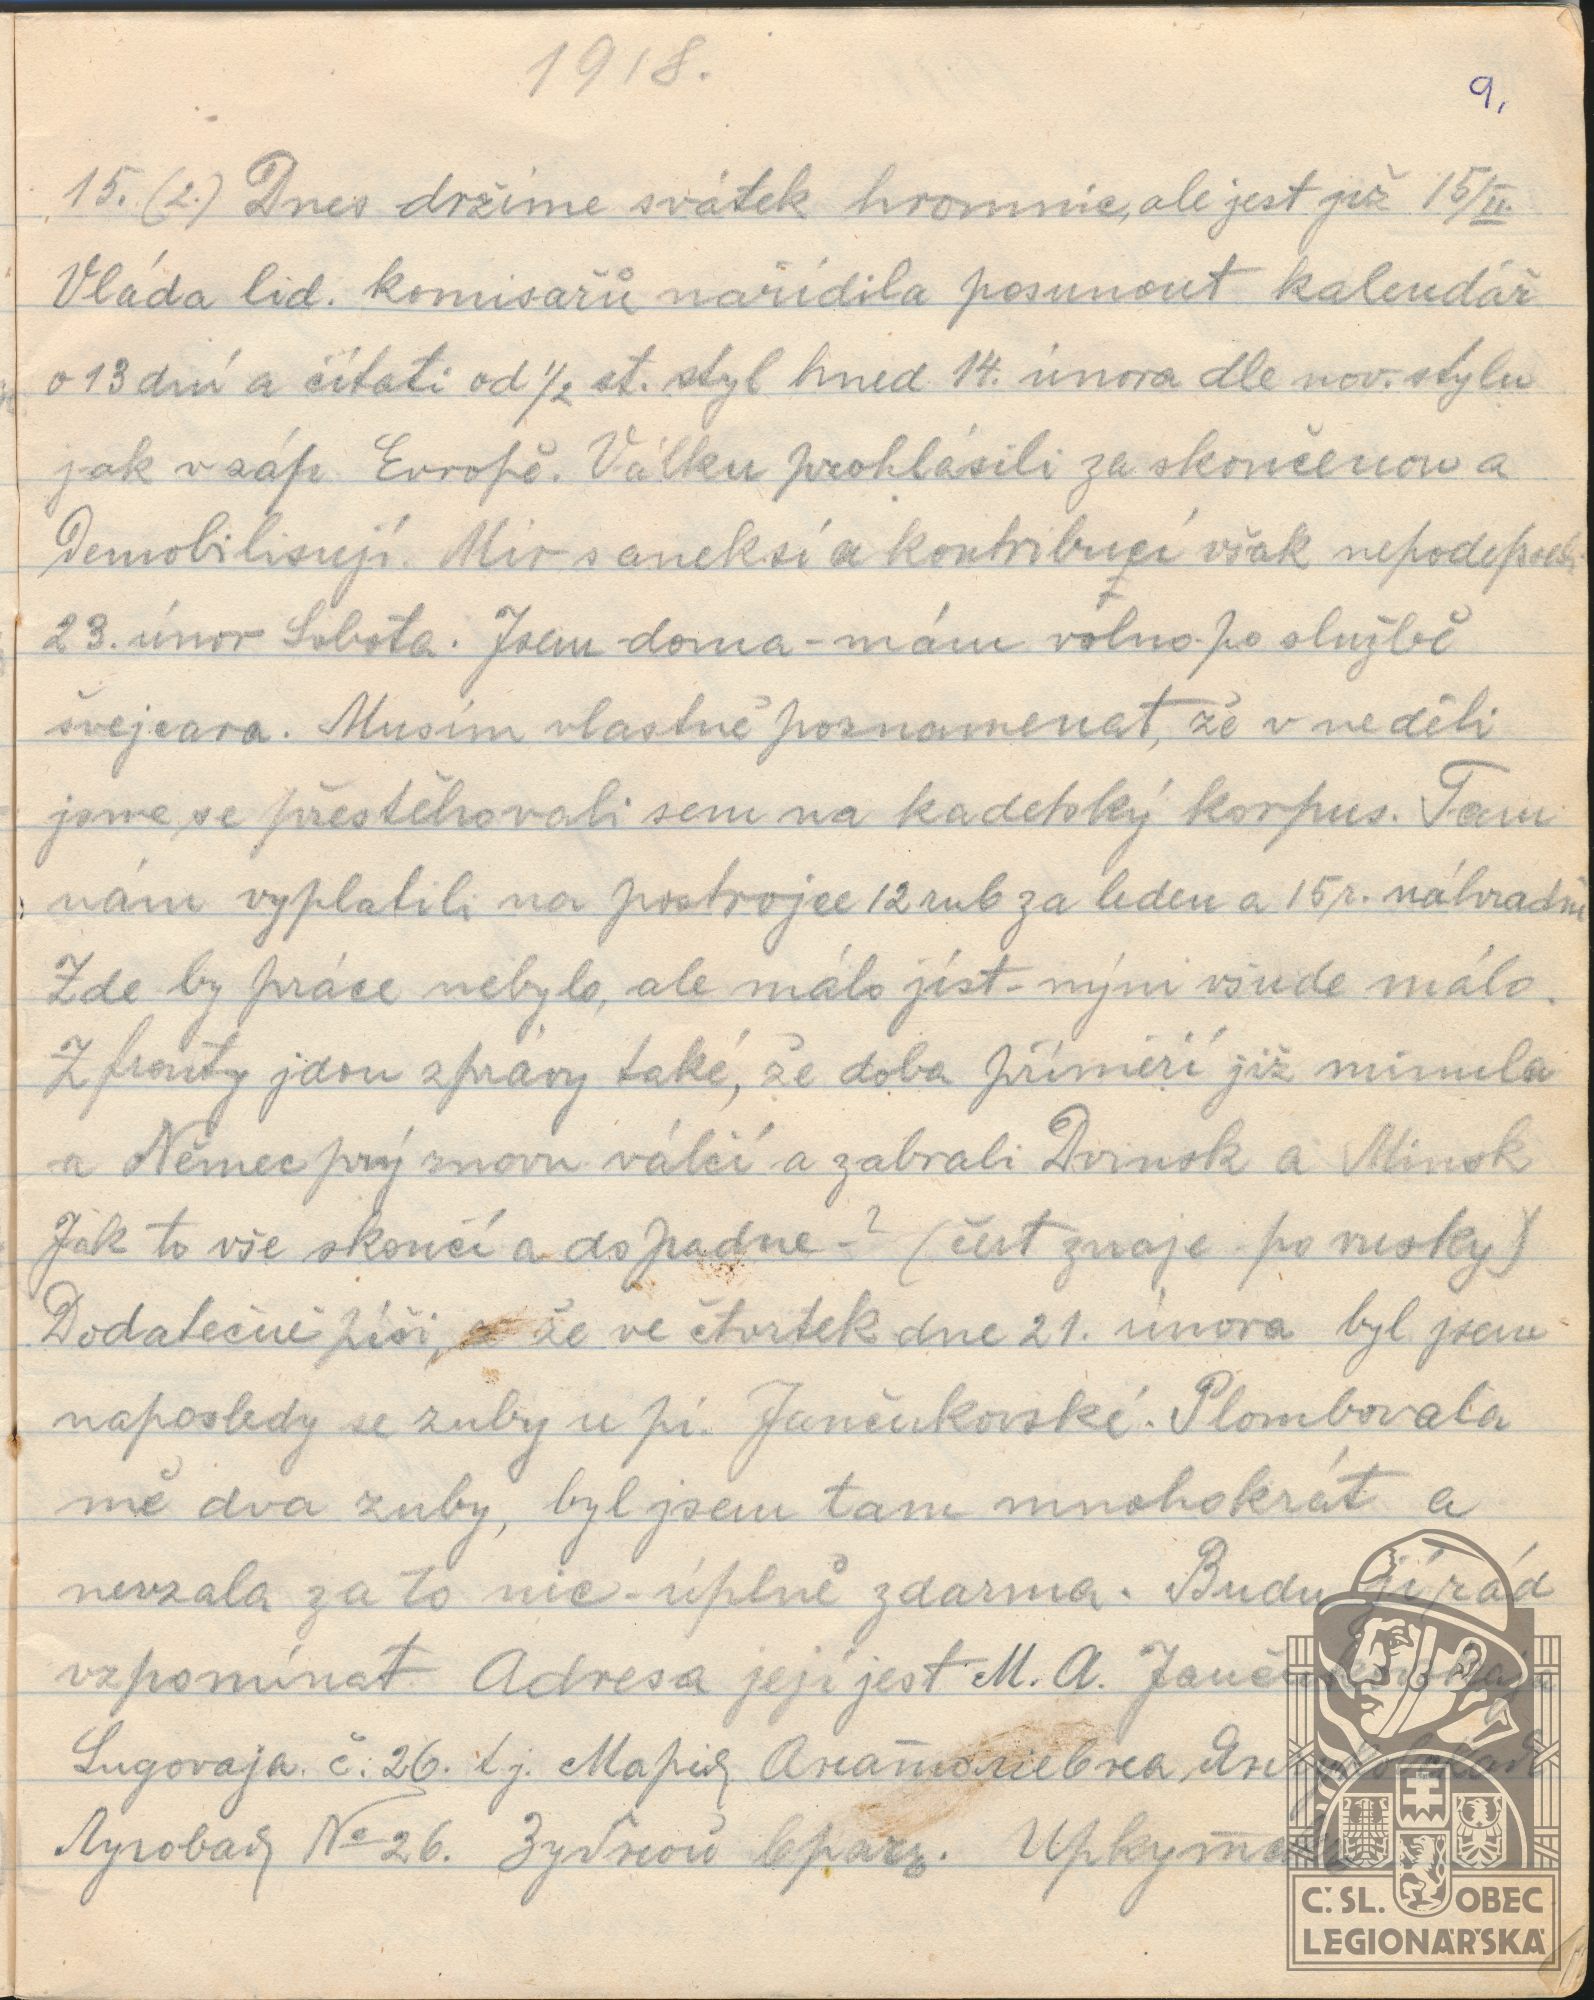 1918.
9.
15. (2.) Dnes držíme svátek hromnic, ale jest již 15/II.
Vláda lid. komisařů nařídila posunout kalendář
o 13 dní a čítati od 1/2 st. styl hned 14. února dle nov. stylu
jak v záp. Evropě. Válku prohlásili za skončenou a
Demobilisují. Mír s aneksí a kontribucí však nepodepsali
23. únor Sobota. Jsem doma - mám volno po službě
švejcara. Musím vlastně poznamenat, že v neděli
jsme se přestěhovali sem na kadetský korpus. Tam
nám vyplatili na postrojce 12 rub za leden a 15 r. náhradně
Zde by práce nebylo, ale málo jíst - nýni všude málo.
Z fronty jdou zprávy také, že doba příměří již minula
a Němec prý znovu válčí a zabrali Dvinsk a Minsk
Jak to vše skončí a dopadne -? (čert znaje po rusky)
Dodatečně píši, že ve čtvrtek dne 21. února byl jsem
naposledy se zuby u pí. Jančukovské. Plombovala
mě dva zuby, byl jsem tam mnohokrát a
nevzala za to nic - úplně zdarma. Budu jí rád
vzpomínat. Adresa její jest M. A.
Lugovaja č. 26. tj. Марія Анатолиевна
Луговая № 26. Зубной врачъ.
Č. SL. OBEC
LEGIONÁŘSKÁ